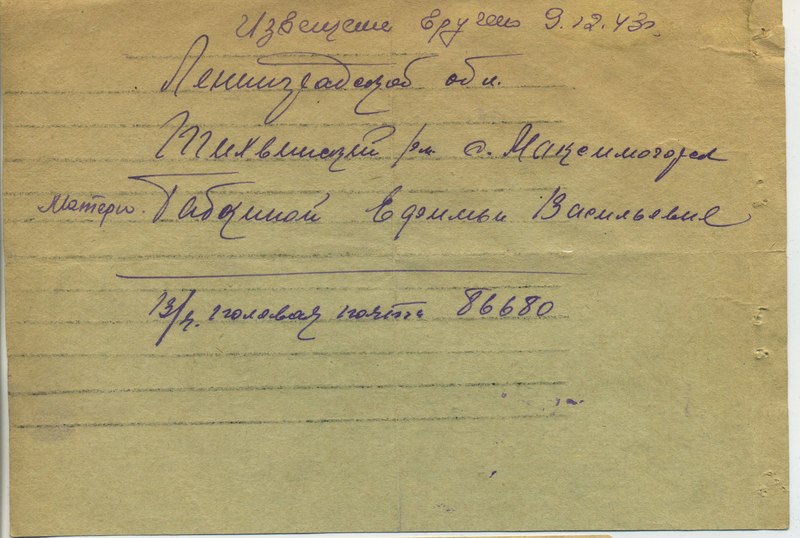 Извещение вручено 9.12.43г.
Ленинградской обл.
Тихвинский р-н с. Максимогорск
Матери. Бабкиной Ефимьи Васильевне
В/ч. полевая почта 86680